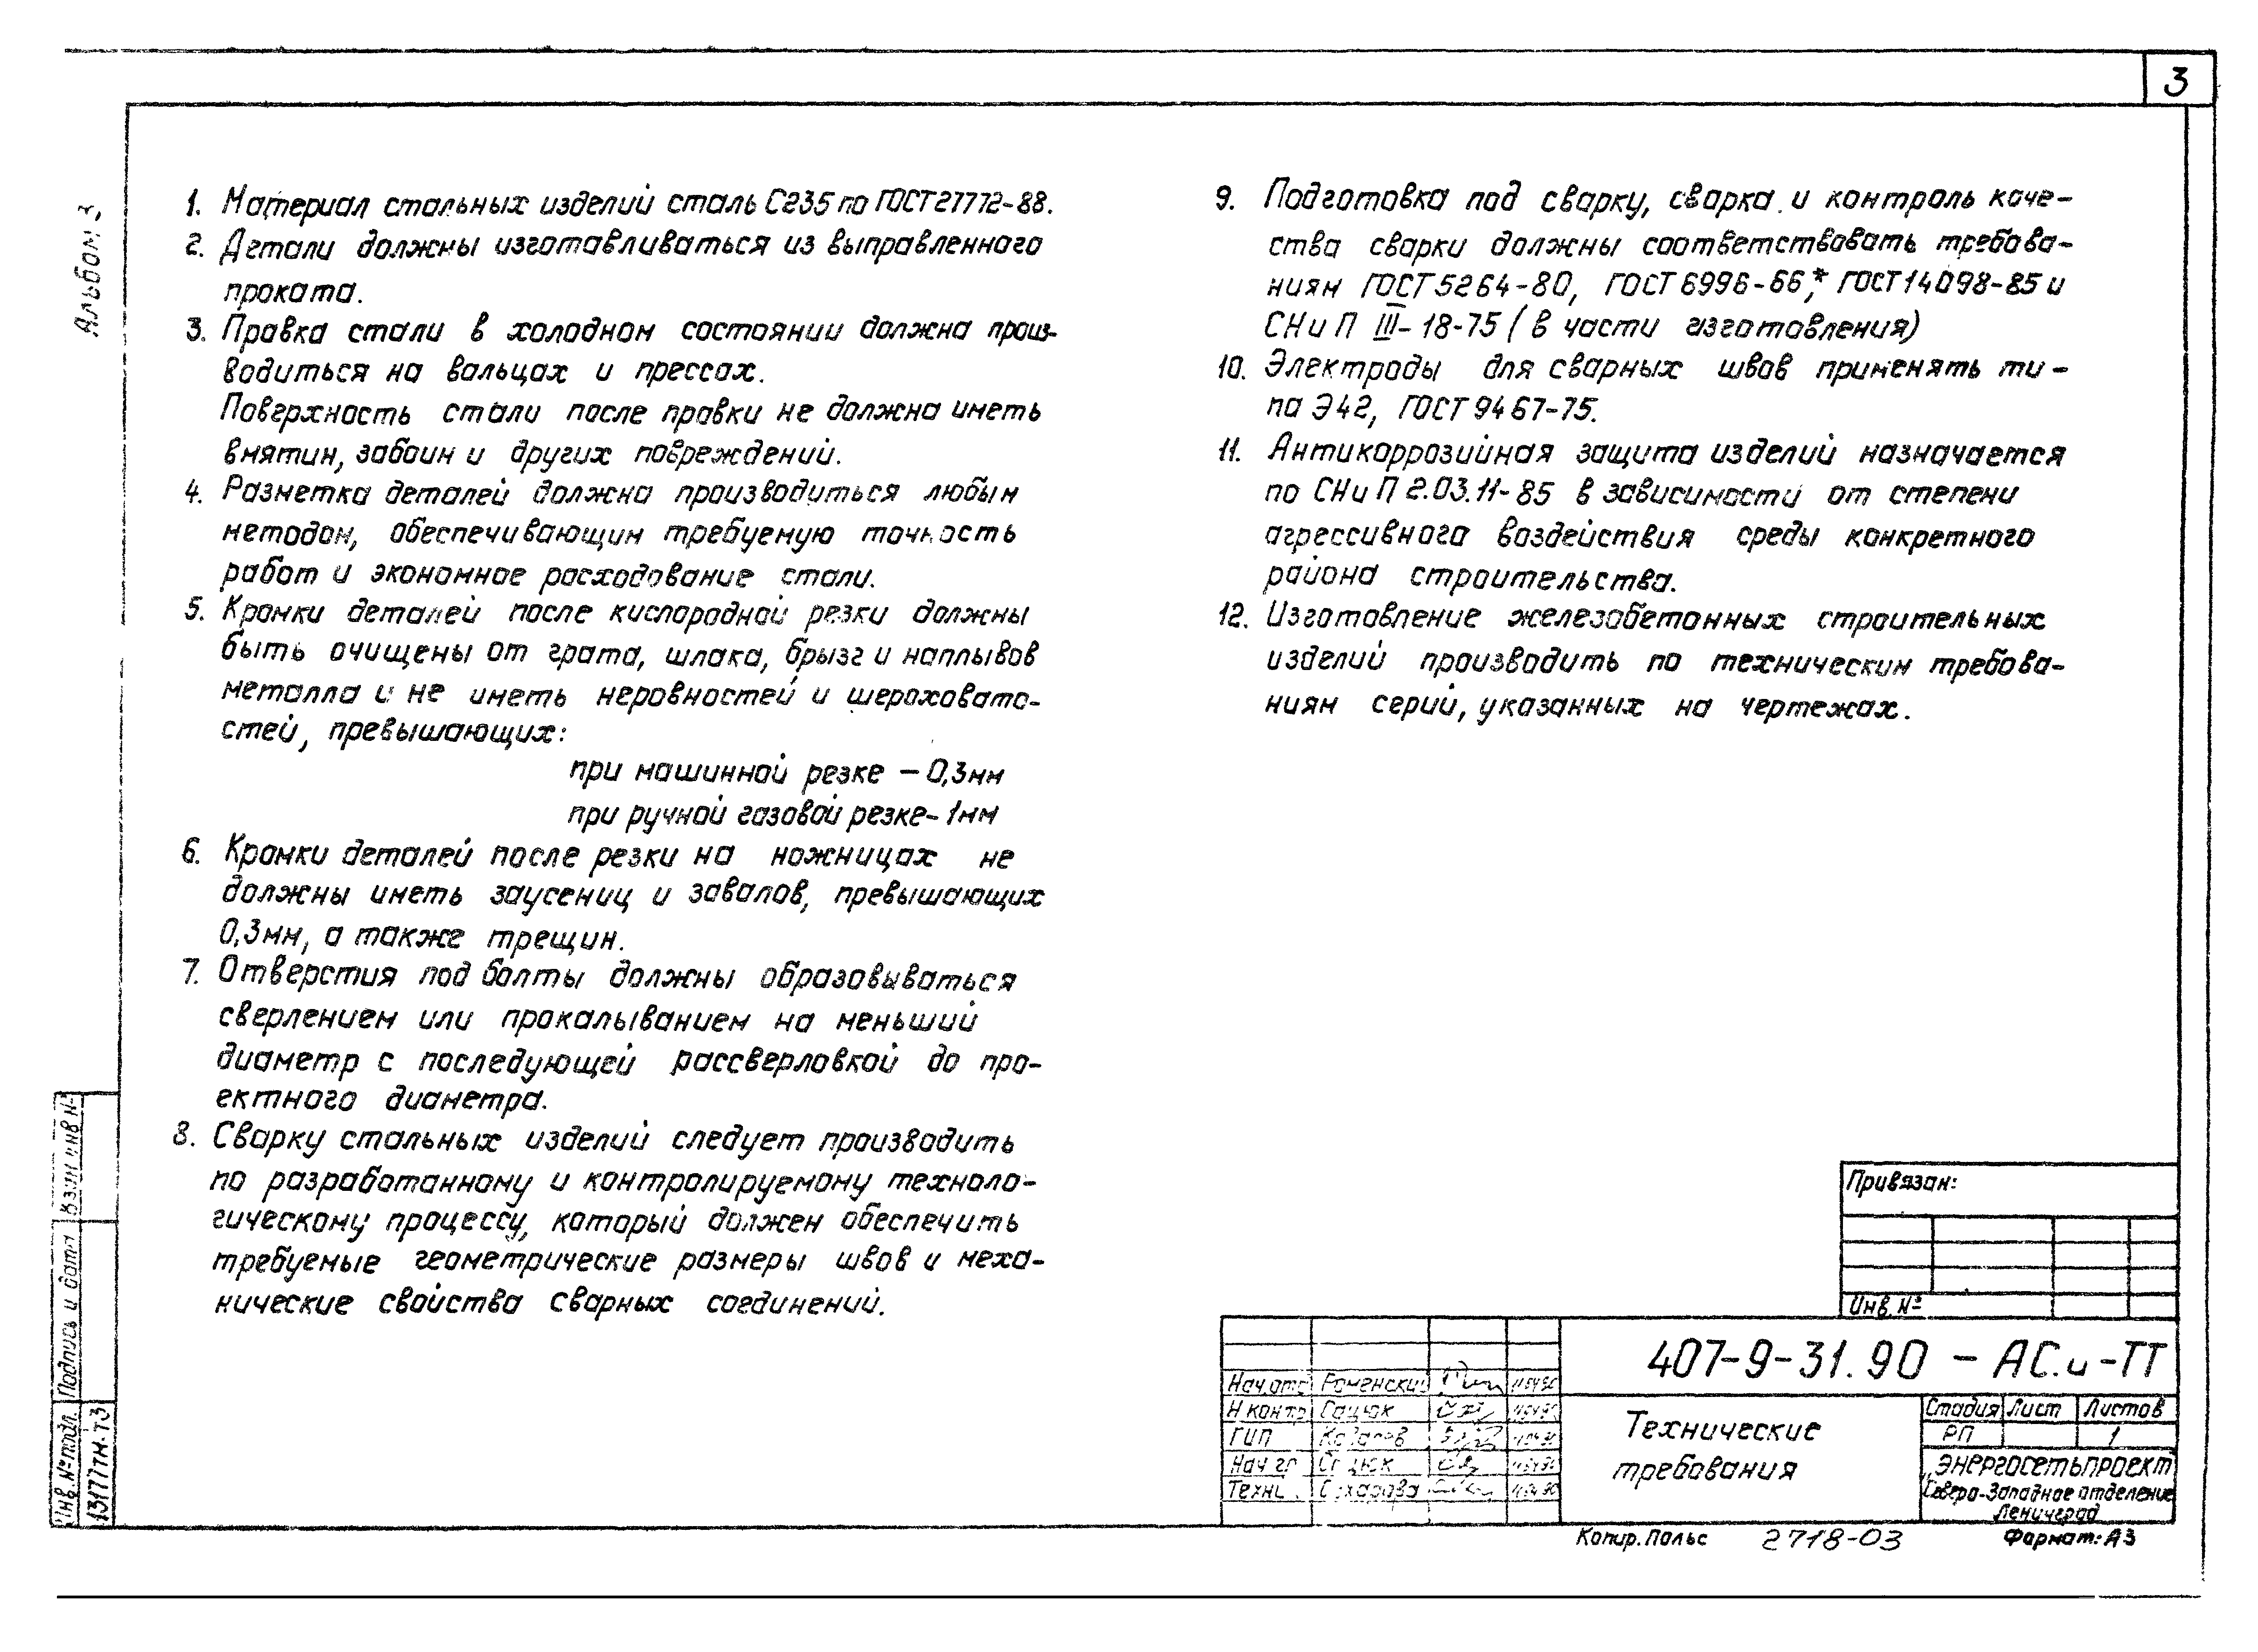 3
Альбом 3
1. Материал стальных изделий сталь С235 по ГОСТ 27772-88.
2. Детали должны изготавливаться из выправленного
проката.
3. Правка стали в холодном состоянии должна произ-
водиться на вальцах и прессах.
Поверхность стали после правки не должна иметь
вмятин, забоин и других повреждений.
4. Разметка деталей должна производиться любым
методом, обеспечивающим требуемую точность
работ и экономное расходование стали.
5. Кромки деталей после кислородной резки должны
быть очищены от грата, шлака, брызг и наплывов
металла и не иметь неровностей и шероховато-
стей, превышающих:
при машинной резке - 0,3мм
при ручной газовой резке - 1мм
6. Кромки деталей после резки на ножницах не
должны иметь заусениц и завалов, превышающих
0,3мм, а также трещин.
7. Отверстия под болты должны образовываться
сверлением или прокалыванием на меньший
диаметр с последующей рассверловкой до про-
ектного диаметра.
8. Сварку стальных изделий следует производить
по разработанному и контролируемому техноло-
гическому процессу, который должен обеспечить
требуемые геометрические размеры швов и меха-
нические свойства сварных соединений.
9. Подготовка под сварку, сварка и контроль каче-
ства сварки должны соответствовать требова-
ниям ГОСТ 5264-80, ГОСТ 6996-66,* ГОСТ 14098-85 и
СНиП III-18-75 (в части изготовления)
10. Электроды для сварных швов применять ти-
па Э42, ГОСТ 9467-75.
11. Антикоррозийная защита изделий назначается
по СНиП 2.03.11-85 в зависимости от степени
агрессивного воздействия среды конкретного
района строительства.
12. Изготовление железобетонных строительных
изделий производить по техническим требова-
ниям серий, указанных на чертежах.
Привязан:
Инв. №
407-9-31.90 - АС.и-ТТ
Нач.отд Роменский
Н контр Сацюк
ГИП
Нач гр Сацюк
Техн.
Технические
требования
Стадия Лист Листов
РП 1
"Энергосетьпроект
Северо-Западное отделение
Ленинград
Копир. Польс 2718-03 Формат: А3
Взам инв №
Подпись и дата
Инв. № подл.
13177тм-т3